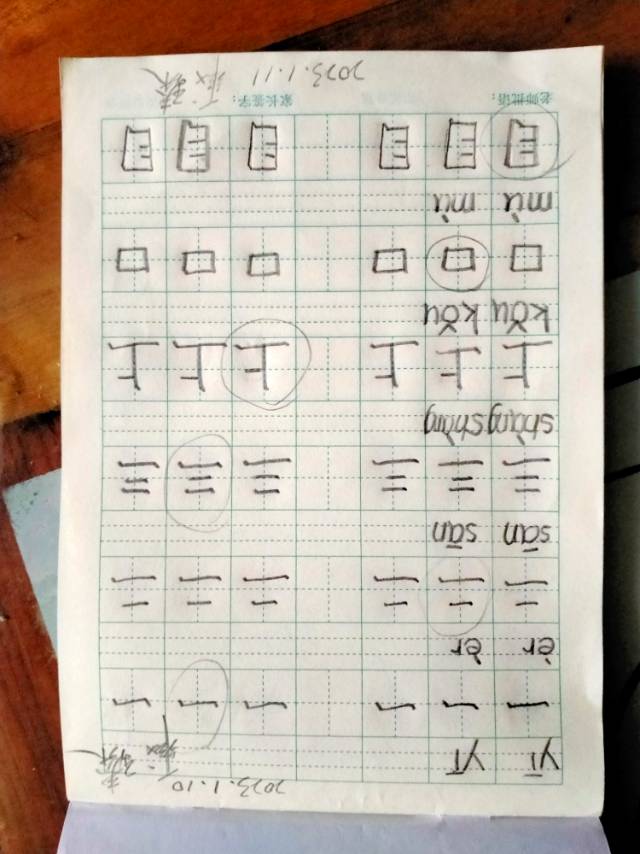 2023.1.10
yī yī
一 一 一 一 一 一
èr èr
二 二 二 二 二 二
sān sān
三 三 三 三 三 三
shàng shàng
上 上 上 上 上 上
kǒu kǒu
口 口 口 口 口 口
mù mù
目 目 目 目 目 目
老师批语： 家长签字：
2023.1.11